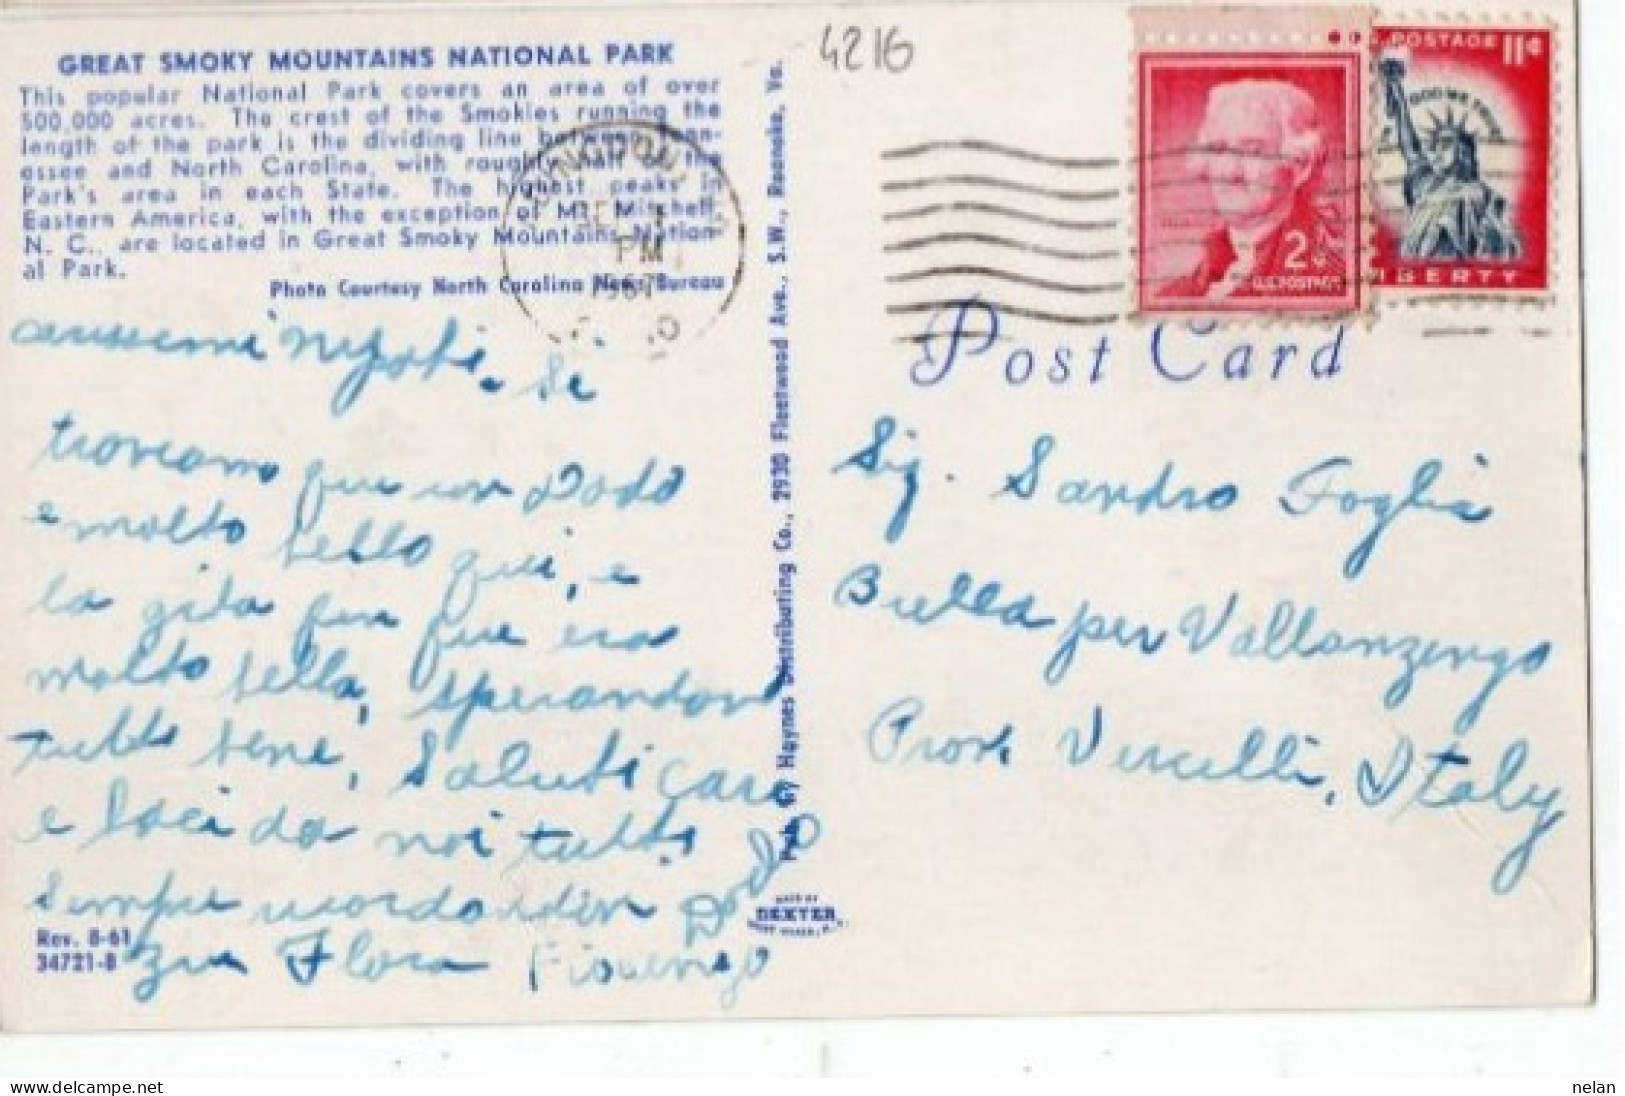 GREAT SMOKY MOUNTAINS NATIONAL PARK
This popular National Park covers an area of over
500,000 acres. The crest of the Smokies running the
length of the park is the dividing line between Tenn-
essee and North Carolina, with roughly half of the
Park's area in each State. The highest peaks in
Eastern America, with the exception of Mt. Mitchell,
N. C., are located in Great Smoky Mountains Nation-
al Park.
Photo Courtesy North Carolina News Bureau
PM
1967
carissimi Nipoti. Si
troviamo qui con Dodo
e molto bello qui, e
la gita per qui era
molto bella, sperandovi
tutti bene, Saluti cari
e baci da noi tutti
Sempre ricordandovi Dodo
zia Flora Fiorenzo
Rev. 8-61
34721-B
Pub. by Haynes Distributing Co., 2930 Fleetwood Ave., S.W., Roanoke, Va.
MADE BY
DEXTER
WEST NYACK, N.Y.
4216
2¢
U.S. POSTAGE
POSTAGE 11¢
IN GOD WE TRUST
LIBERTY
Post Card
Sig. Sandro Foglia
Biella per Vallanzengo
Prov Vercelli, Italy
nelan